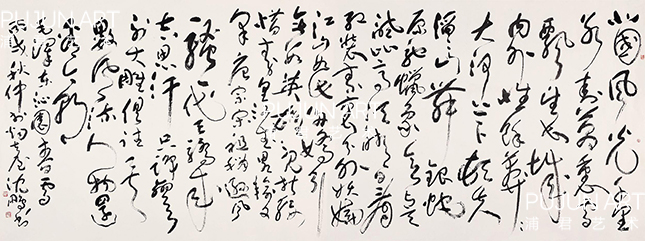 北國风光千里
冰封万里雪
飘望长城
内外惟余莽莽
大河上下顿失
滔滔山舞银蛇
原驰蜡象欲与天
公试比高须晴日看
红装素裹分外妖娆
江山如此多娇引
无数英雄竞折腰
惜秦皇汉武略输文
采唐宗宋祖稍逊风
骚一代天骄成
吉思汗只识弯弓
射大雕俱往矣
数风流人物还
看今朝
毛泽东沁园春雪
沈鹏书
PUJUN ART
浦君艺术